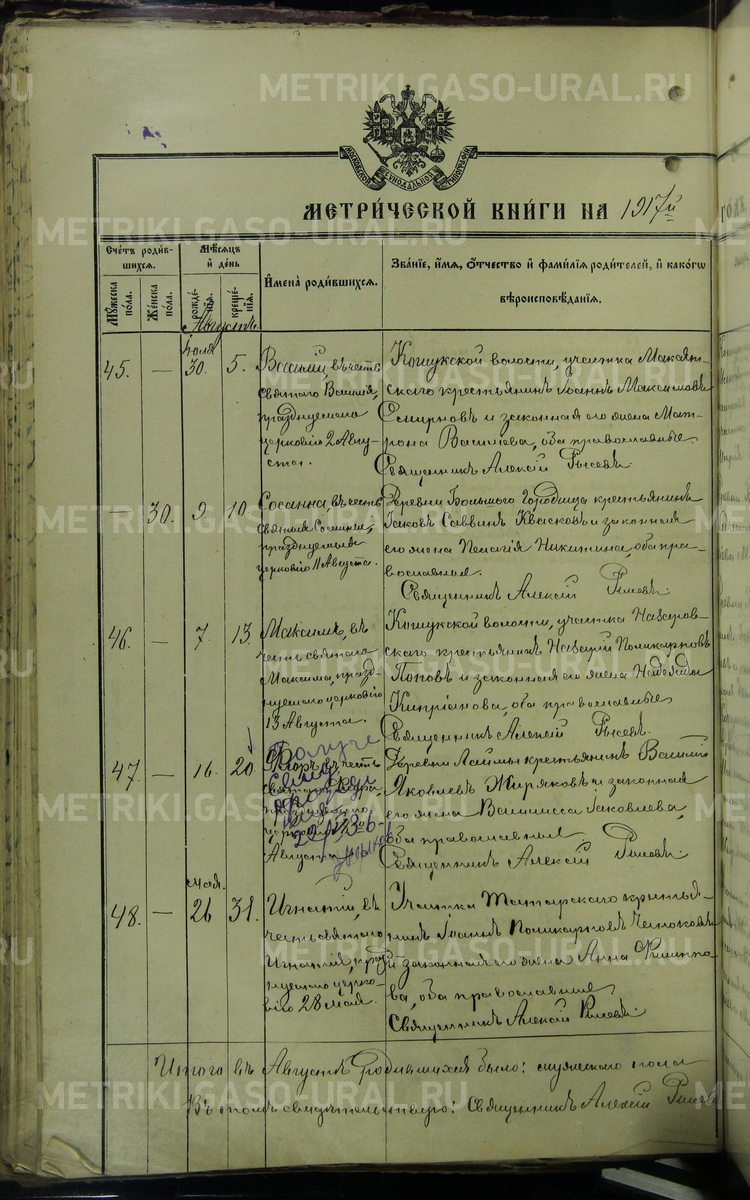 METRIKI.GASO-URAL.RU
МОСКОВСКОЙ СѴНОДАЛЬНОЙ ТИПОГРАФІИ
МЕТРИ́ЧЕСКОЙ КНИ́ГИ НА 1917й
Счетъ родив-
шихся.
Мужеска пола.
Женска пола.
Мѣсяцъ и день
рожде-
нія.
креще-
нія.
Имена родившихся.
Званіе, имя, отчество и фамилія родителей, и какого
вѣроисповѣданія.
Августъ
45. — Іюля 30. 5.
Василій, въ честь
святого Василія,
празднуемаго
церковію 2 Авгу-
ста.
Кошукской волости, участка
крестьянинъ Іоаннъ Максимовъ
Смирновъ и законная его жена Мат-
рона Васильева, оба православные.
Священникъ Алексій
— 30. 2. 10.
Сосанна, въ честь
святыя Сосанны,
празднуемыя
церковію 11 Августа.
Деревни Большого Городища крестьянинъ
Іаковъ Саввинъ Квасковъ и законная
его жена Пелагія Никитина, оба пра-
вославные.
Священникъ Алексій
46. — 7. 13.
Максимъ, въ
честь святаго
Максима, празд-
нуемаго церковію
13 Августа.
Кошукской волости, участка Назаров-
скаго крестьянинъ Назарій Поликарповъ
Поповъ и законная его жена Надежда
Кипріанова, оба православные
Священникъ Алексій
47. — 16. 20.
въ честь
святаго
Августа
Деревни Лаймы крестьянинъ Василій
Яковлевъ Жиряковъ и законная
его жена Василисса Іаковлева,
оба православные
Священникъ Алексій
48. — мая. 26 31.
Игнатій, въ
честь святаго
Игнатія, праз-
нуемаго церко-
вію 28 мая.
Участка Татарскаго крестья-
нинъ Іоаннъ Поликарповъ
и законная его жена Анна Филиппо-
ва, оба православные
Священникъ Алексій
Итого въ Августѣ родившихся было: мужескаго пола
Въ томъ свидѣтельствую: Священникъ Алексій